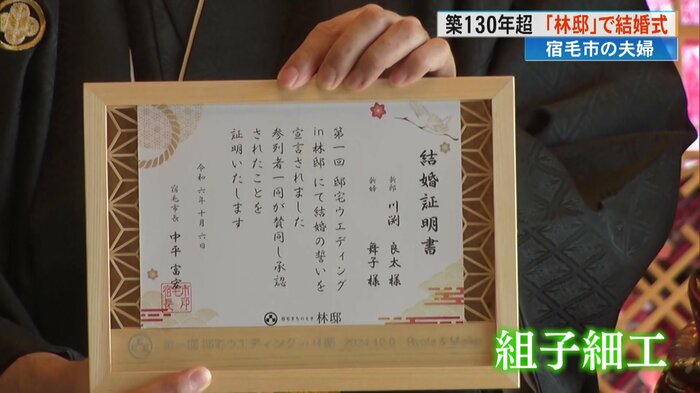 築130年超 「林邸」で結婚式
宿毛市の夫婦
結婚証明書
新郎 川渕 良太 様
新婦 舞子 様
第一回 邸宅ウエディング
in林邸 にて結婚の誓いを
宣言されました
参列者一同が賛同し承認
されたことを
証明いたします
令和六年十月六日
宿毛市長 中平 富宏
宿毛市長印
林邸
組子細工